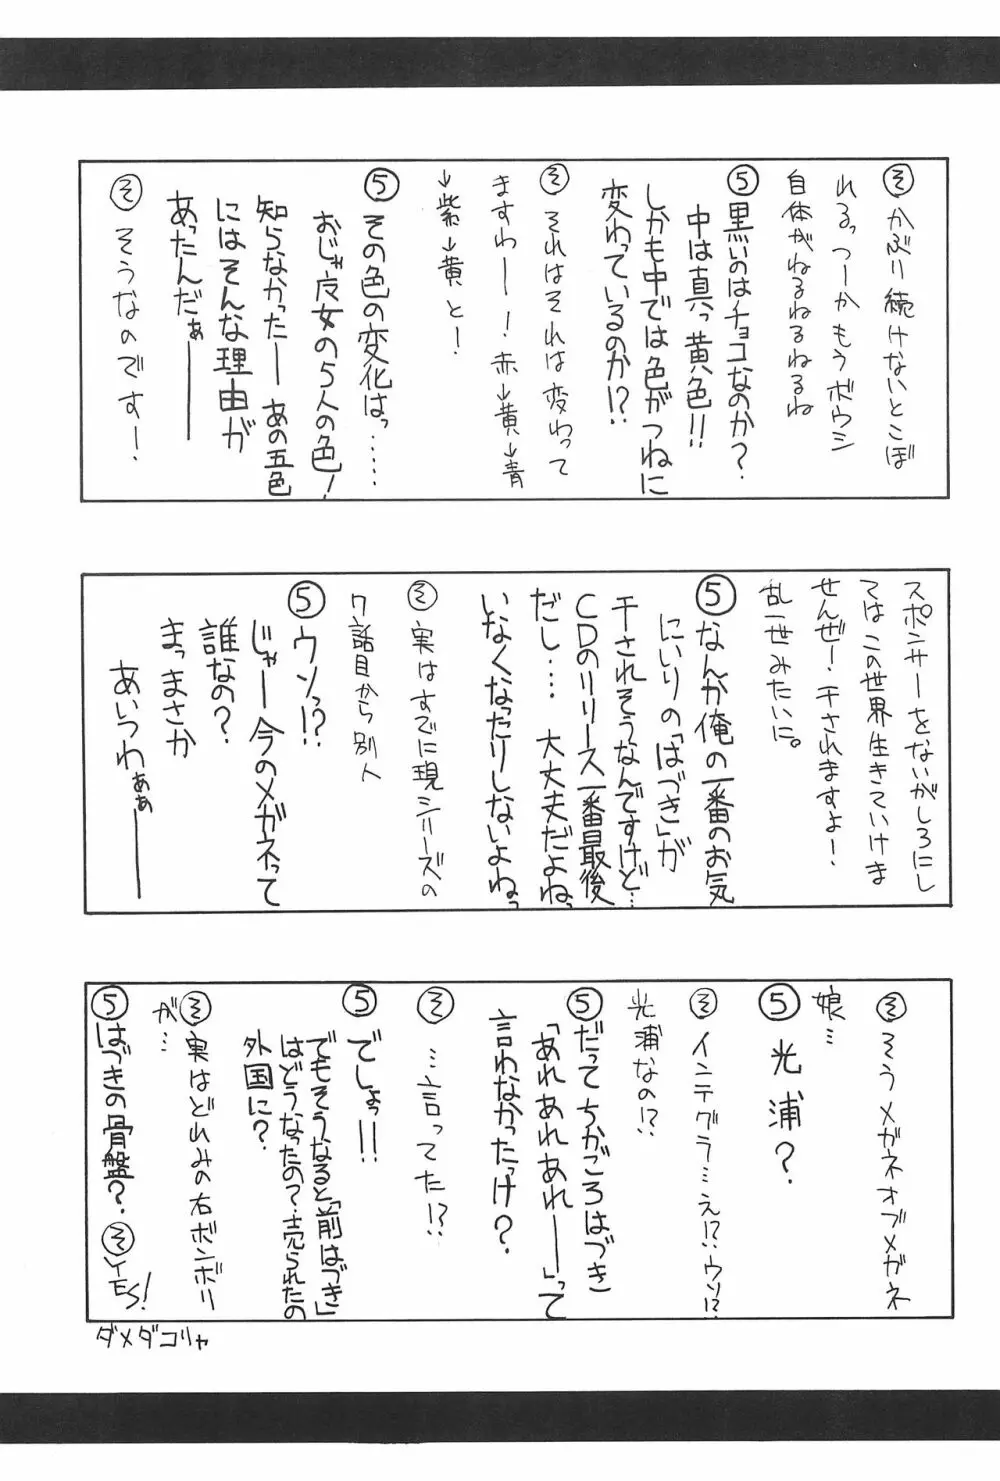 そ かぶり続けないとこぼ
れるっつーかもうボウシ
自体がねるねるねるね
5 黒いのはチョコなのか?
中は真っ黄色!!
しかも中では色がつねに
変わっているのか!?
そ それはそれは変わって
ますわー!赤→黄→青
→紫→黄と!
5 その色の変化はっ……
おジャ魔女の5人の色!
知らなかったーあの五色
にはそんな理由が
あったんだぁーーー
そ そうなのですー!
スポンサーをないがしろにし
てはこの世界生きていけま
せんぜー!干されますよー!
乱一世みたいに。
5 なんか俺の一番のお気
にいりの「はづき」が
干されそうなんですけど…
CDのリリース一番最後
だし…大丈夫だよねっ
いなくなったりしないよねっ
そ 実はすでに現シリーズの
7話目から別人
5 ウソっ!?
じゃー今のメガネって
誰なの?
まっまさか
あいつわぁぁーーー
そ そうメガネオブメガネ
娘…
5 光浦?
そ インテグラ…え!?ウソ!?
光浦なの!?
5 だってちかごろはづき
「あれあれあれーー」って
言わなかったっけ?
そ …言ってた!?
5 でしょっ!!
でもそうなると「前はづき」
はどうなったの?売られたの
外国に?
そ 実はどれみの右ボンボリ
が…
5 はづきの骨盤? そ YES!
ダメダコリャ